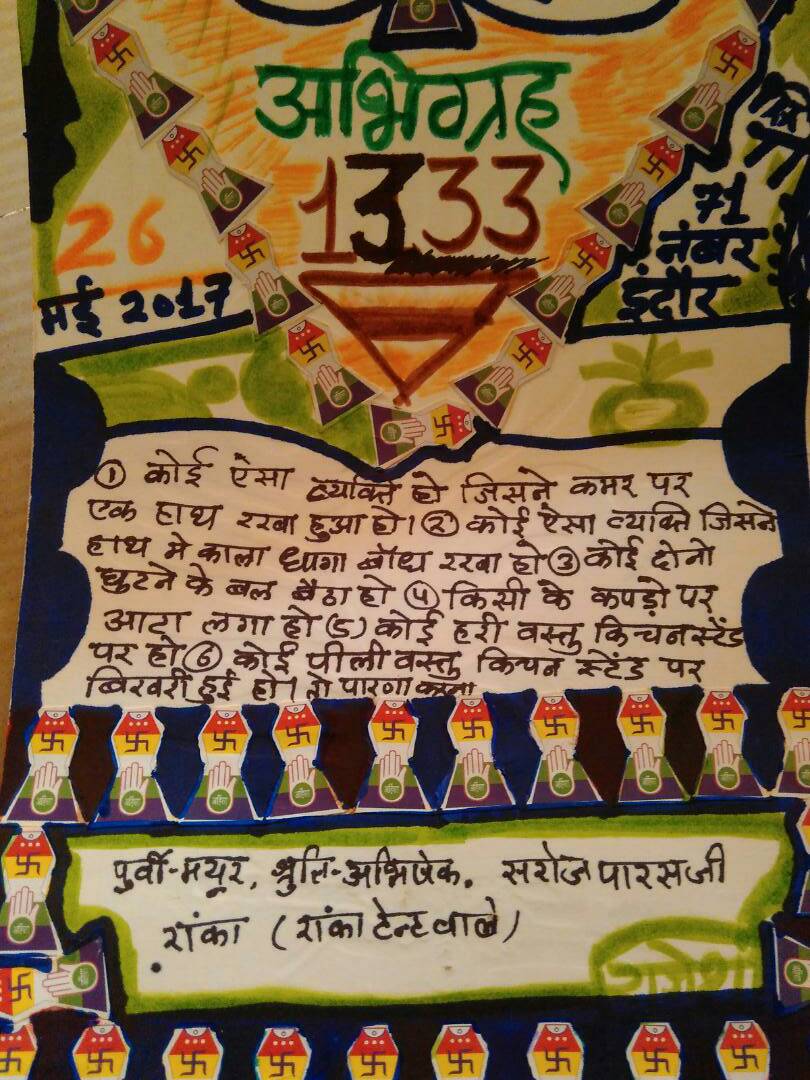 अभिग्रह
1333
26
मई 2017
71
नंबर
इंदौर
① कोई ऐसा व्यक्ति हो जिसने कमर पर
एक हाथ रखा हुआ हो। ② कोई ऐसा व्यक्ति जिसने
हाथ मे काला धागा बाँध रखा हो ③ कोई दोनो
घुटने के बल बैठा हो ④ किसी के कपड़ो पर
आटा लगा हो (5) कोई हरी वस्तु किचन स्टेंड
पर हो ⑥ कोई पीली वस्तु किचन स्टेंड पर
बिखरी हुई हो। तो पारणा करना
पुर्वी-मयूर, श्रुति-अभिषेक, सरोज पारसजी
रांका (रांका टेन्ट वाले)